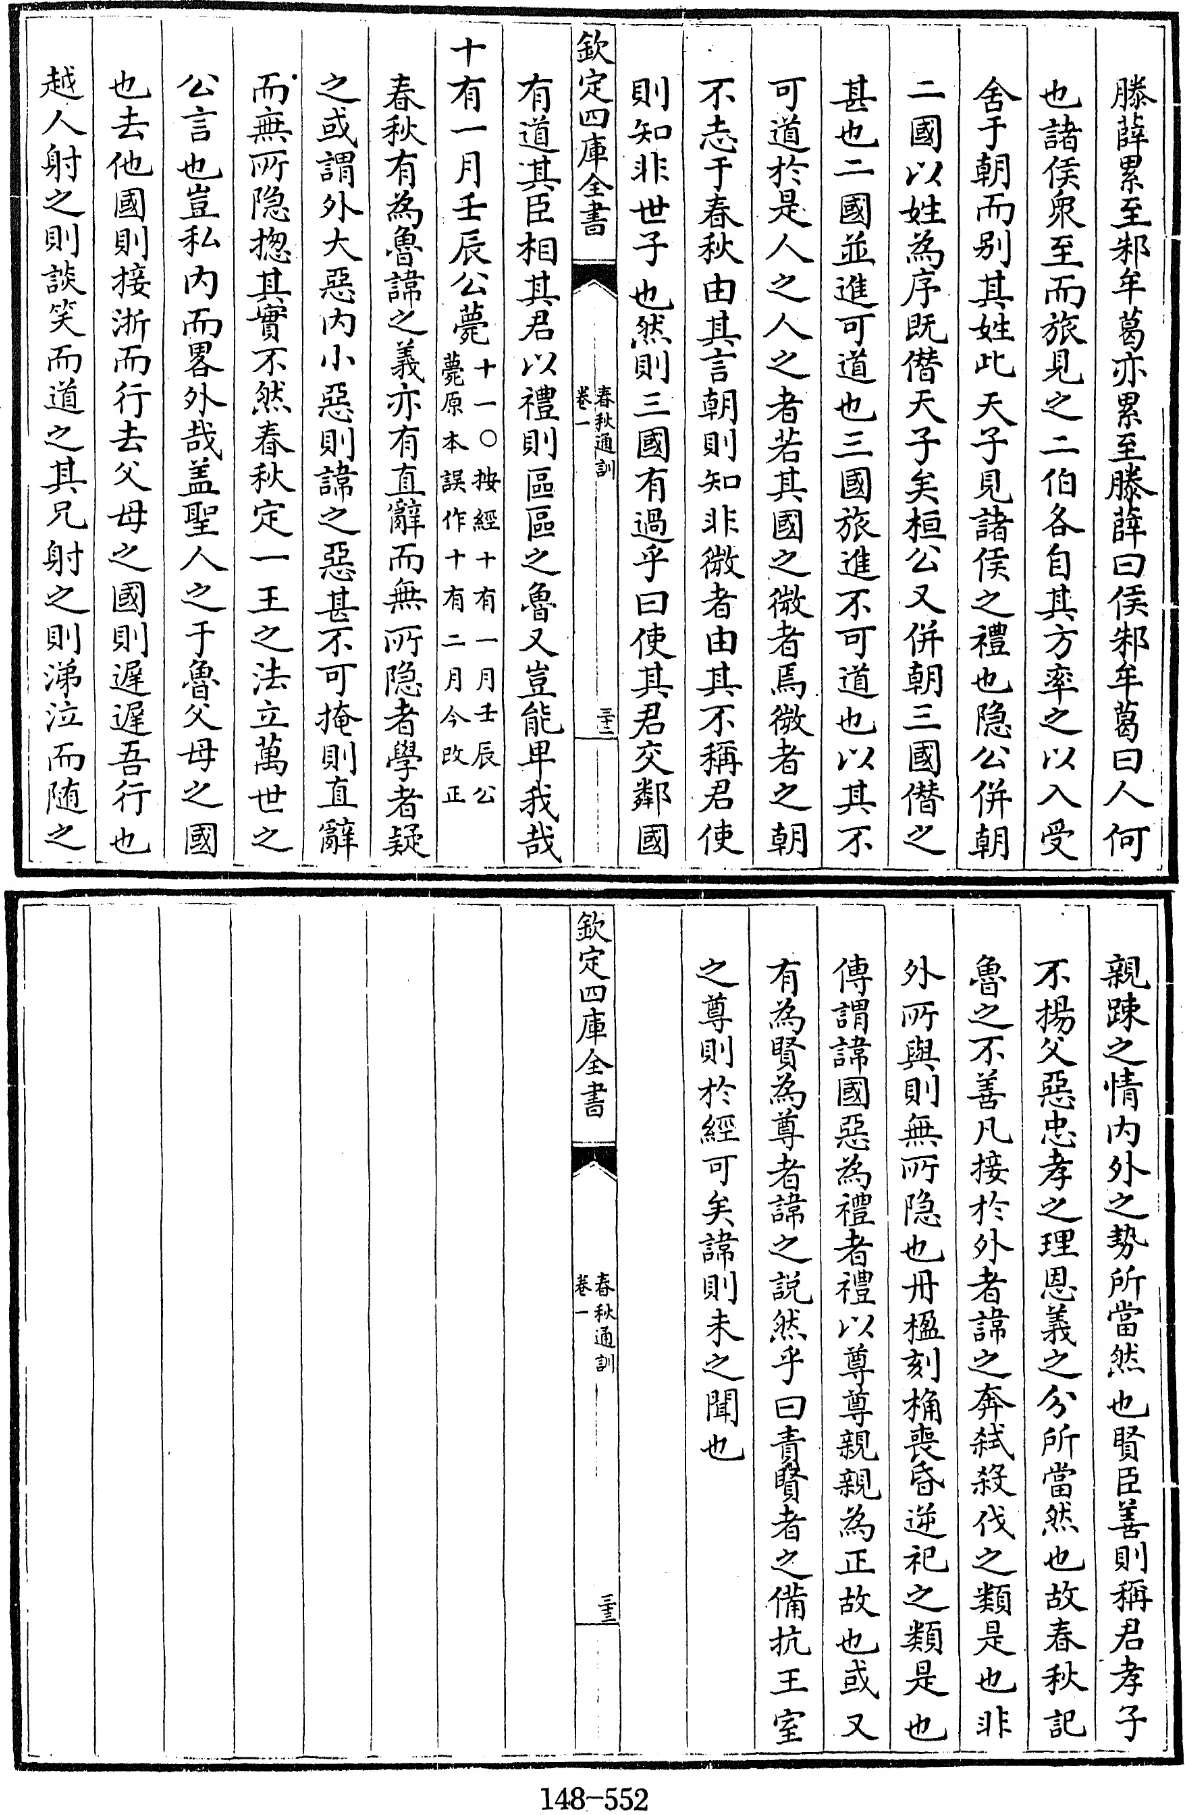 滕薛累至邾牟葛亦累至滕薛曰侯邾牟葛曰人何
也諸侯衆至而旅見之二伯各自其方率之以入受
舍于朝而别其姓此天子見諸侯之禮也隐公併朝
二國以姓為序既僭天子矣桓公又併朝三國僭之
甚也二國並進可道也三國旅進不可道也以其不
可道於是人之人之者若其國之微者焉微者之朝
不志于春秋由其言朝則知非微者由其不稱君使
則知非世子也然則三國有過乎曰使其君交鄰國
欽定四庫全書
春秋通訓
卷一
三十二
有道其臣相其君以禮則區區之魯又豈能卑我哉
十有一月壬辰公薨十一○按經十有一月壬辰公
薨原本誤作十有二月今改正
春秋有為魯諱之義亦有直辭而無所隐者學者疑
之或謂外大惡内小惡則諱之惡甚不可掩則直辭
而無所隐揔其實不然春秋定一王之法立萬世之
公言也豈私内而畧外哉盖聖人之于魯父母之國
也去他國則接淅而行去父母之國則遲遲吾行也
越人射之則談笑而道之其兄射之則涕泣而随之
親踈之情内外之勢所當然也賢臣善則稱君孝子
不揚父惡忠孝之理恩義之分所當然也故春秋記
魯之不善凡接於外者諱之奔弑殺伐之類是也非
外所與則無所隐也丹楹刻桷喪昏逆祀之類是也
傳謂諱國惡為禮者禮以尊尊親親為正故也或又
有為賢為尊者諱之説然乎曰責賢者之備抗王室
之尊則於經可矣諱則未之聞也
欽定四庫全書
春秋通訓
卷一
三十三
148-552